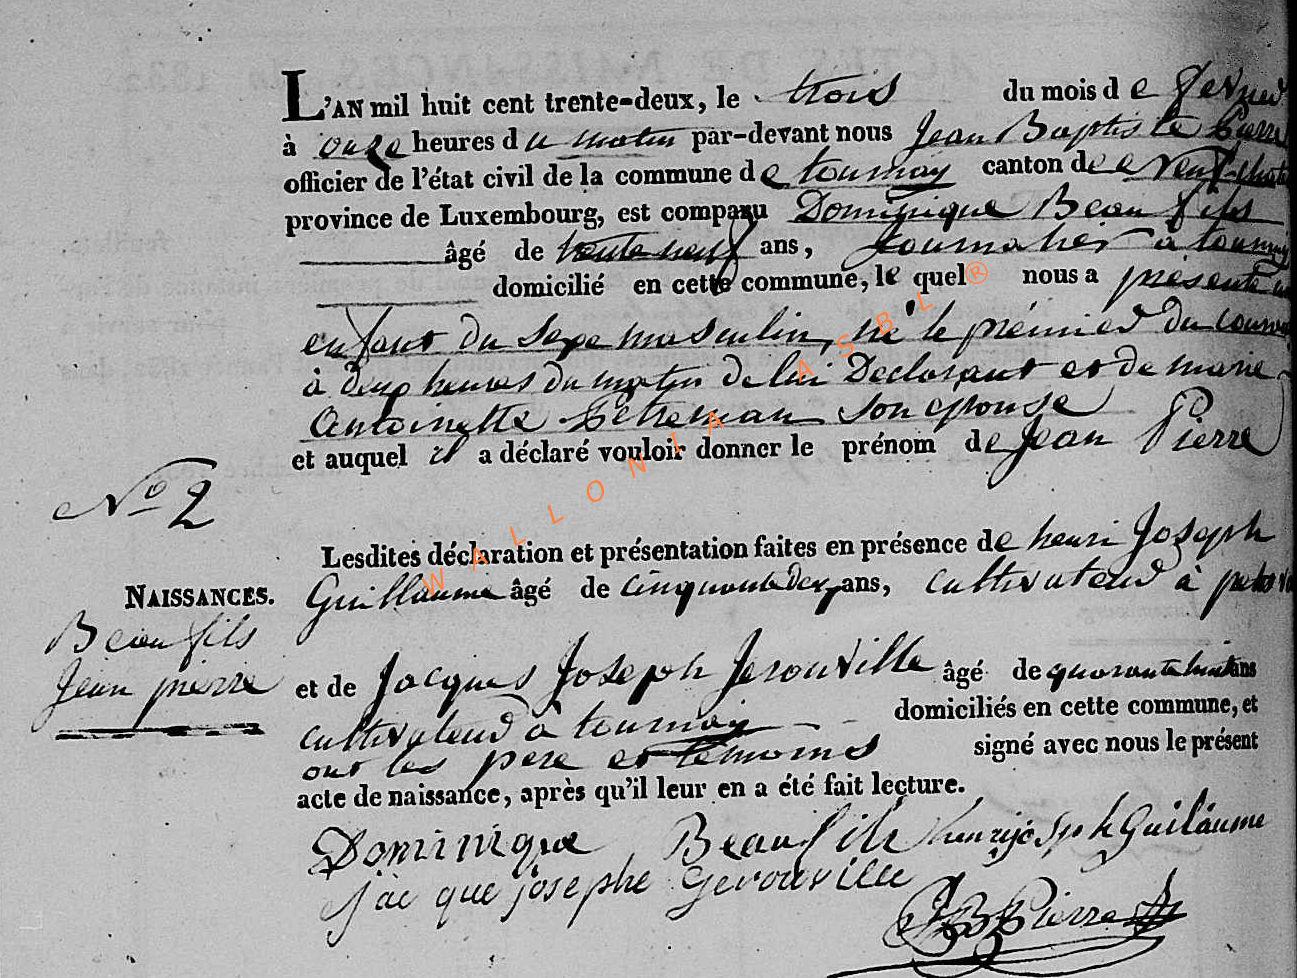 L'AN mil huit cent trente-deux, le trois du mois de fevrier
à onze heures du matin par-devant nous Jean Baptiste Pierre
officier de l'état civil de la commune de tournay canton de neufchat
province de Luxembourg, est comparu Dominique Beau fils
âgé de trente neuf ans, journalier à tournay
domicilié en cette commune, le quel nous a présenté un
enfant du sexe masculin, né le prémier du courant
à deux heures du matin de lui Declarant et de marie
Antoinette son epouse
et auquel il a déclaré vouloir donner le prénom de Jean Pierre
No 2
Lesdites déclaration et présentation faites en présence de henri Joseph
NAISSANCES. Guillaume âgé de cinquante deux ans, cultivateur à
Beau fils
Jean pierre et de Jacques Joseph Jerouville âgé de quarante huit ans
cultivateur à tournay domiciliés en cette commune, et
ont les pere et temoins signé avec nous le présent
acte de naissance, après qu'il leur en a été fait lecture.
Dominique Beau fils henrijosph Guilaume
jacque josephe Gerouville
JB Pierre
WALLONIA ASBL®